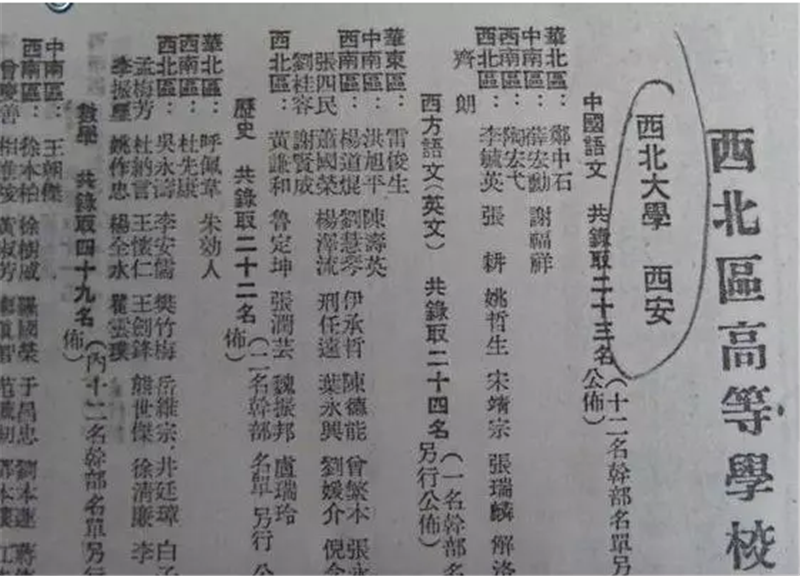 西北區高等學校
西北大學 西安
中國語文 共錄取二十三名(十二名幹部名單另
公佈)
華北區：鄭中石
中南區：薛安勳 謝福祥
西南區：陶宏弋
西北區：李毓英 張耕 姚哲生 宋靖宗 張瑞麟 解洛
齊朗
西方語文(英文) 共錄取二十四名(一名幹部名
另行公佈)
華東區：雷俊生
中南區：洪旭平 陳壽英
西南區：楊道焜 劉慧琴 伊承哲 陳德能 曾繁本 張永
張四民 蕭國榮 楊澤流 刑任遠 葉永興 劉媛介 倪念
劉桂容 謝賢威
西北區：黃謙和 魯定坤 張潤芸 魏振邦 盧瑞玲
歷史 共錄取二十二名(二名幹部名單另行公
佈)
華北區：呼佩華 朱効人
西南區：杜先康
西北區：吳永濤 李安儒 樊竹梅 岳維宗 井廷璋 白子
孟梅芳 杜納言 王懷仁 王劍鋒 熊世傑 徐清廉 李
李振聖 姚作忠 楊全水 瞿雲璞
數學 共錄取四十九名(內十二名幹部名單另行
佈)
中南區：王朝傑
西南區：徐本柏 徐樹威 羅國榮 于昌忠 劉本連 蔣
曾慶善 黃淑芳